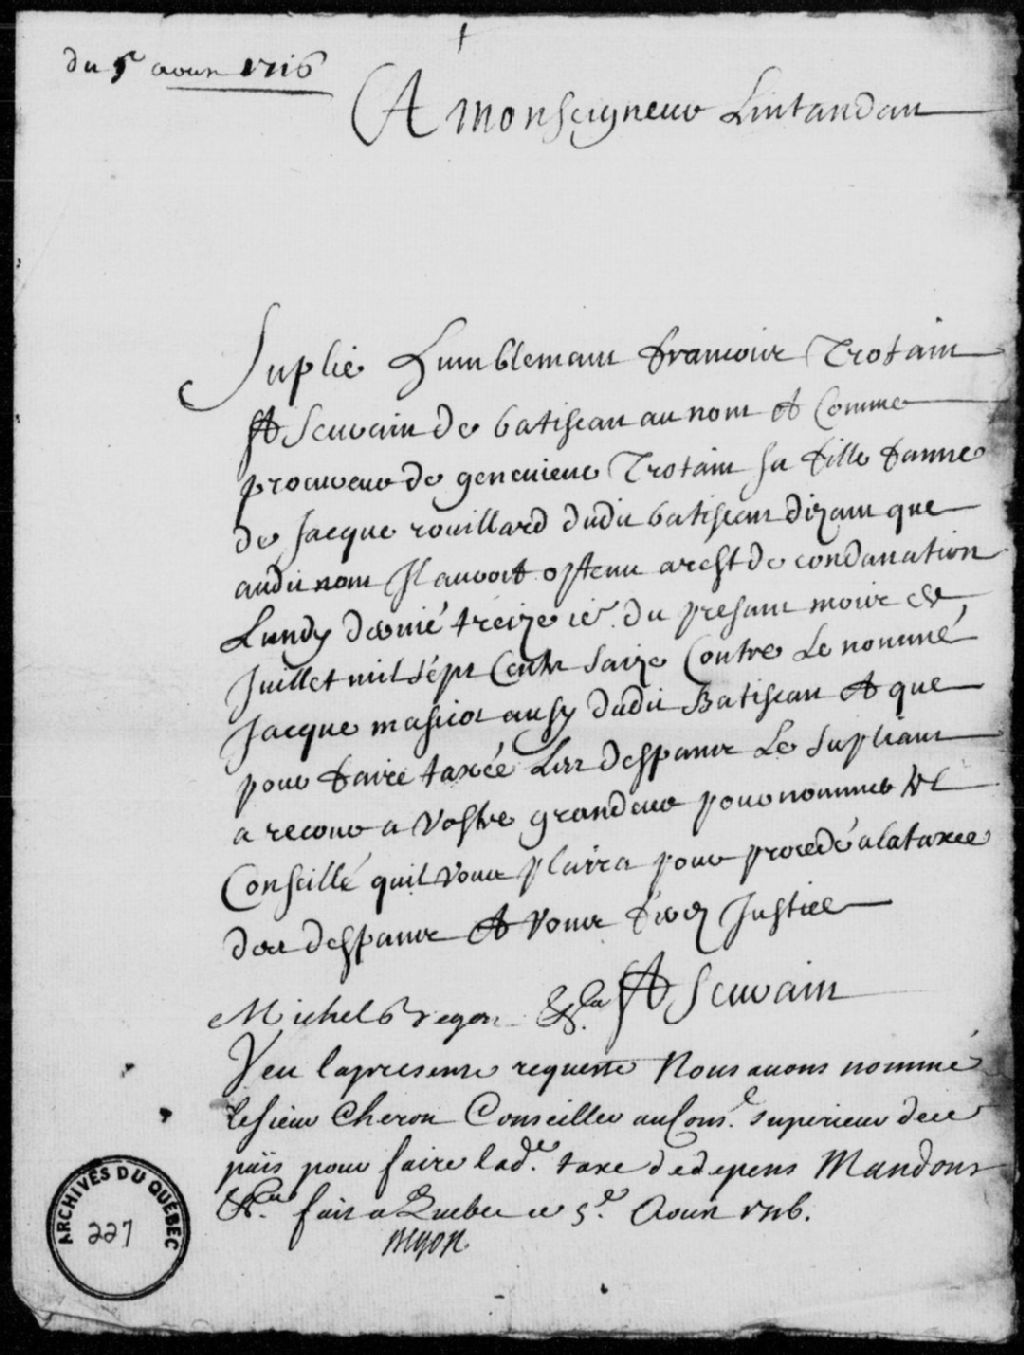 du 5e aoust 1716
A Monseigneur Lintandan
Suplie humblemant francois Trotain
St Seuvain de batiscan au nom et Comme
procureur de genevieve Trotain sa fille fame
de Jacque rouillard dudit batiscan dizant que
audit nom Il auroit optenu arest de condanation
Lundy dernié treize ie. du presant mois de
Juillet mil sept Cents saize Contre Le nommé
Jacque masicot ausy dudit Batiscan et que
pour faire taxée Les despans Le supliant
a recour a Vostre grandeur pour nommer tel
Conseillé quil vous plaira pour procedé a la taxee
des despans et vous ferez Justice
St Seuvain
Michel Begon &ca
Veu la presente requeste Nous avons nommé
le sieur Cheron Conseiller au Conse. superieur de ce
païs pour faire lade. taxe de depens Mandons
&ca. fait a Quebec ce 5e. Aoust 1716.
Begon
ARCHIVES DU QUÉBEC
227